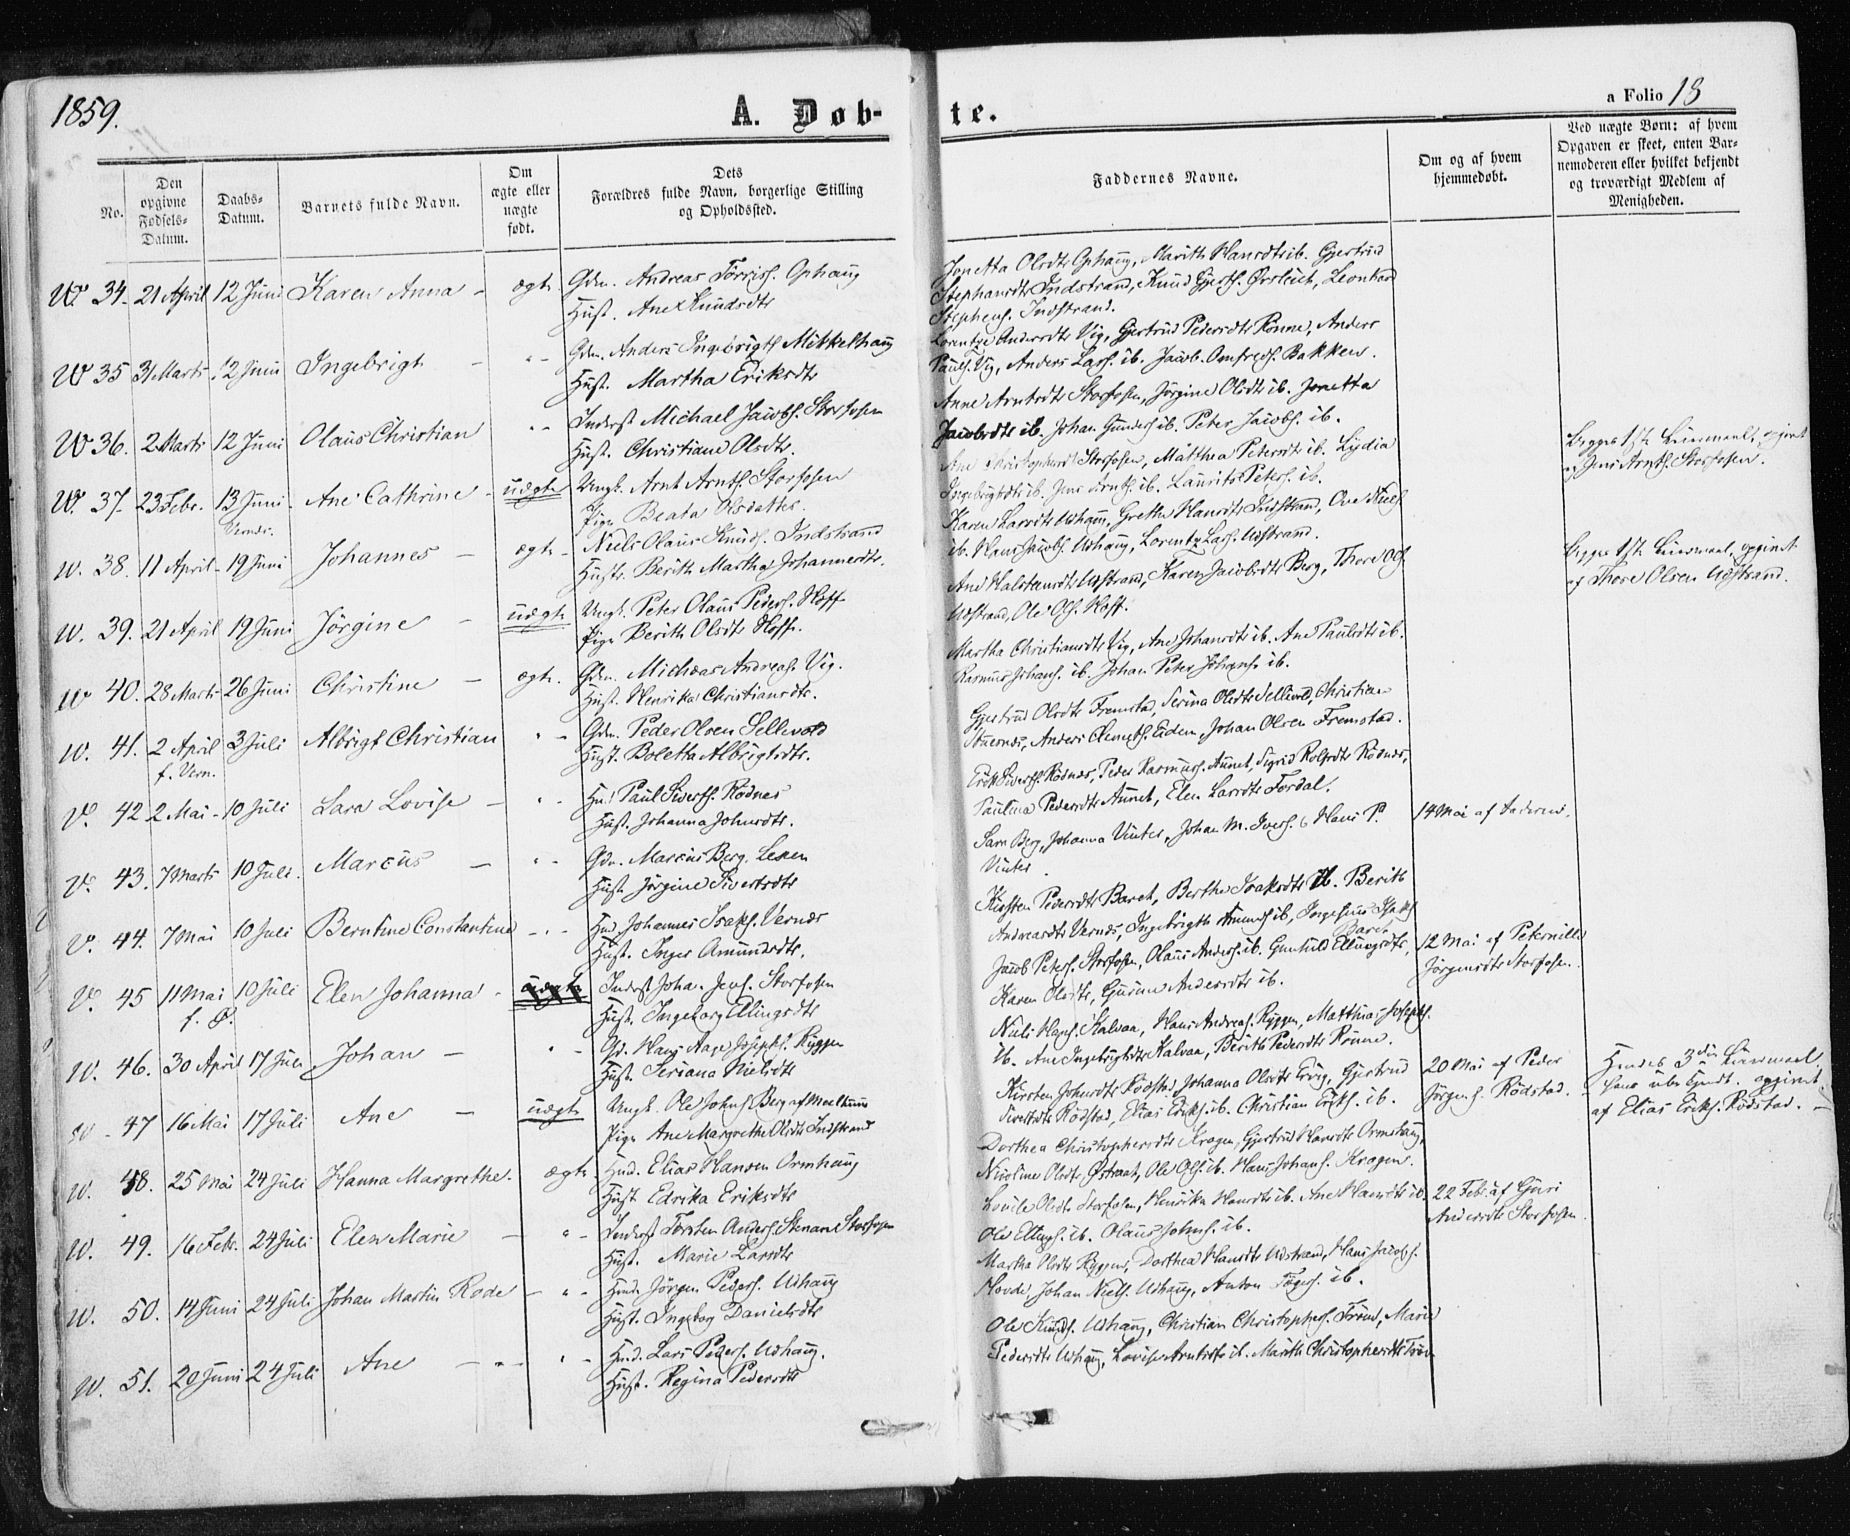 1859.
A. Døb-
te.
a Folio 18
No.
Den opgivne Fødsels-Datum.
Daabs-Datum.
Barnets fulde Navn.
Om ægte eller uægte født.
Dets Forældres fulde Navn, borgerlige Stilling og Opholdssted.
Faddernes Navne.
Om og af hvem hjemmedøbt.
Ved uægte Børn: af hvem Opgaven er skeet, enten Barnemoderen eller hvilket bekjendt og troværdigt Medlem af Menigheden.
34. 21 April 12 Juni Karen Anna - ægte Gdm. Andreas Torris. Ophaug
Hust. Ane Knudsdtr
Jonetta Olsdtr Ophaug, Marith Hansdtr ib. Gjertrud
Stephansdtr Indstrand, Knud Gjertss. Leonhard
Stephens. Indstrand.
W 35 31 Marts 12 Juni Ingebrigt - " - Gdm. Anders Ingebrigts. Mikkelhaug
Hust. Martha Eriksdtr
Lorentze Andersdtr Vig, Gjertrud Pedersdtr Rønne, Anders
Pauls. Vig, Anders Lars. ib. Jacob Bakken.
W 36. 2 Marts 12 Juni Olaus Christian " - Inderst Michael Jacobs. Storfosen
Hust. Christiane Olsdtr.
Anne Arntsdtr Storfosen, Jörgine Olsdtr ib. Jonetta
Jacobsdtr ib. Johan Gunders. ib. Peter Jacobs. ib.
W. 37. 23 Febr. 13 Juni Ane Cathrine - uægte Ungk. Arnt Arnts. Storfosen
Pige Beata Olsdatter.
Ane Christophersdtr Storfosen, Matthea Pedersdtr ib. Lydia
Ingebrigtsdtr ib. Jens Arnts. ib. Laurits Peters. ib.
Begges 1ste Leiermaal, opgivet
af Jens Arnts. Storfosen.
W. 38. 11 April - 19 Juni Johannes - ægte - Niels Olaus Knuds. Indstrand
Hustr. Berith Martha Johannesdtr.
Karen Larsdtr Udhaug, Grethe Hansdtr Indstrand, Ove Niels.
ib. Hans Jacobs. Udhaug, Lorentz Lars. Udstrand.
W. 39. 21 April 19 Juni Jörgine - uægte Ungk. Peter Olaus Peders. Hoff
Pige Berith Olsdtr Hoff.
Ane Halstensdtr Udstrand, Karen Jacobsdtr Berg, Thore Ols.
Udstrand, Ole Ols. Hoff.
Begges 1ste Leiermaal, opgivet
af Thore Olsen Udstrand.
W 40. 28 Marts 26 Juni Christine - ægte. Gdm. Michæas Andreas. Vig.
Hust. Henrika Christiansdtr.
Martha Christiansdtr Vig, Ane Johansdtr ib. Ane Paulsdtr ib.
Rasmus Johans. ib. Johan Peter Johans. ib.
W. 41. 2 April 3 Juli Albrigt Christian " - Gdm. Peder Olsen Sellevold
f. Vern.
Hust. Boletta Albrigtsdtr.
Gjertrud Olsdtr Fremstad, Serina Olsdtr Sellevold, Christian
Anders Clemets. Eiden, Johan Olsen Fremstad.
V. 42 2 Mai - 10 Juli Sara Lovise - " - Paul Siverts. Rödnes
Hust. Johanna Johnsdtr.
Erik Siverts. Rödnes, Peder Rasmus. Aunet, Sigrid Rolfsdtr Rödnes,
Paulina Pedersdtr Aunet, Elen Larsdtr Fordal.
V. 43. 7 Marts 10 Juli. Marcus - " - Gdm. Marcus Berg.
Hust. Jörgine Sivertsdtr
Sara Berg, Johanna Vinter, Johan M. Ivers. & Hans P.
Vinter.
14 Mai af
V. 44. 7 Mai 10 Juli Berntine Constantine - " - Hmd. Johannes Isaks. Vernæs
Hust. Inger Amundsdtr.
Kirsten Pedersdtr Baret, Berthe Isaksdtr ib. Berith
Andreasdtr Vernæs, Ingebrigth Amunds. ib,
V. 45 11 Mai 10 Juli Elen Johanna - Inderst Johan Jens. Storfosen
Hust. Ingeborg Ellingsdtr
Jacob Peters. Storfosen, Olaus Anders. ib. Gunhild Ellingsdtr,
Karen Olsdtr, Guruna Andersdtr ib.
12 Mai af Peternille
Jörgensdtr Storfosen.
W. 46. 30 April 17 Juli Johan - " - Gd. Hans Aage Josephs. Ryggen
Hust. Seriana Nielsdtr
Niels Hans. Kalvaa, Hans Andreas. Ryggen, Matthias Josephs.
ib. Ane Ingebrigtsdtr Kalvaa, Berith Pedersdtr Rönne.
W - 47 16 Mai 17 Juli Ane - uægte Ungk. Ole Johns. Berg af Mælhuus
Pige Ane Margrethe Olsdtr Indstrand
Kirsten Johnsdtr Rödstad, Johanna Olsdtr Ervig, Gjertrud
Sivertsdtr Rödstad, Elias Eriks. ib. Christian Eriks. ib.
20 Mai af Peder
Jörgens. Rödstad.
Hendes 3die Leiermaal,
hans ubekjendt. opgivet
af Elias Eriks. Rödstad. -
W. 48. 25 Mai 24 Juli Hanna Margrethe. ægte Hmd. Elias Hansen Ormhaug
Hust Edrika Eriksdtr
Dorthea Christophersdtr Kragen, Gjertrud Hansdtr Ormhaug,
Nicoline Olsdtr. Østraat, Ole Ols. ib. Hans Johans. Kragen.
W. 49. 16 Febr. 24 Juli Elen Marie - " - Inderst Torsten Anders. Stenara Storfosen
Hust. Marie Larsdtr
Lovise Olsdtr Storfosen, Henrika Hansdtr ib. Ane Hansdtr ib.
Ole Ellings. ib. Olaus Johns. ib.
22 Febr. af Guri
Andersdtr Storfosen.
W. 50. 14 Juni 24 Juli Johan Martin Rode - " - Hmd. Jörgen Peders. Udhaug
Hust. Ingebog Danielsdtr
Martha Olsdtr Ryggen, Dorthea Hansdtr Udstrand, Hans Jacobs.
Hovde, Johan Niels. Udhaug, Anton ib.
W. 51. 20 Juni 24 Juli Ane - " - " - Hmd. Lars Peders. Udhaug.
Hust. Regina Pedersdtr
Ole Knuds. Udhaug, Christian Christophers. Marie
Pedersdtr Udhaug, Lovise Arntsdtr ib. Marith Christophersdtr